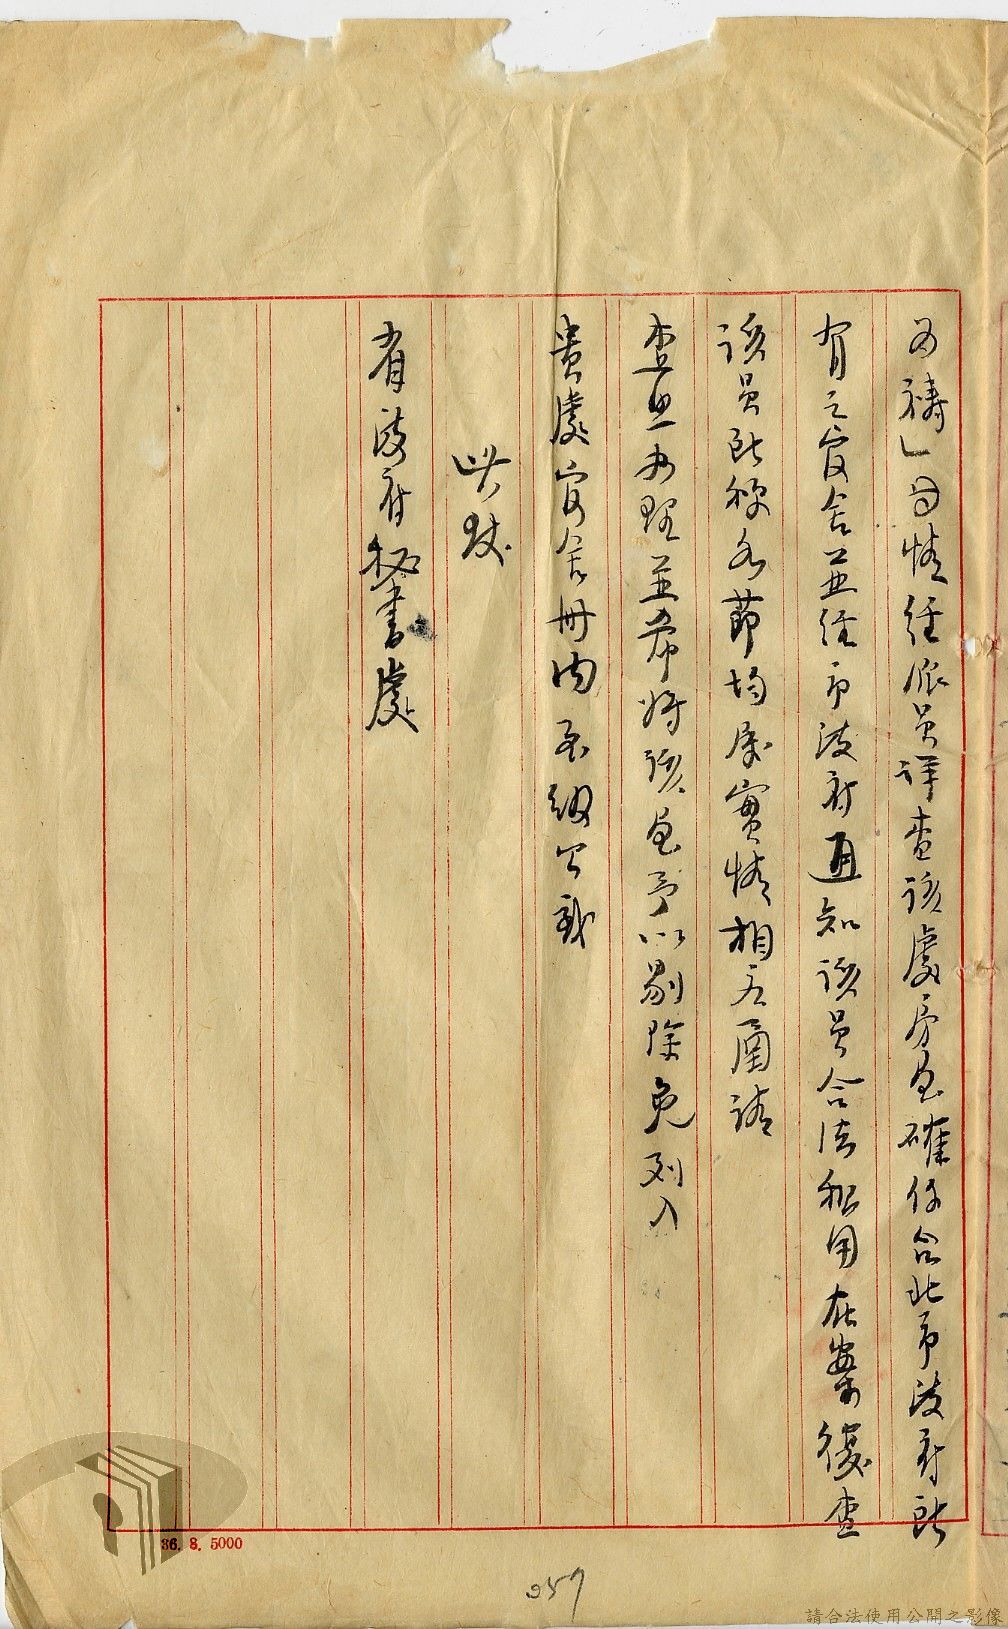 為禱」因情經派員詳查該處房屋確係台北市政府所
有之官舍並經市政府通知該員合法租用在案復查
該員所稱各節均屬實情相應函請
查照辦理並希將該屋予以剔除免列入
貴處官舍冊內至紉公誼
此致
省政府秘書處
36. 8. 5000
057
請合法使用公開之影像